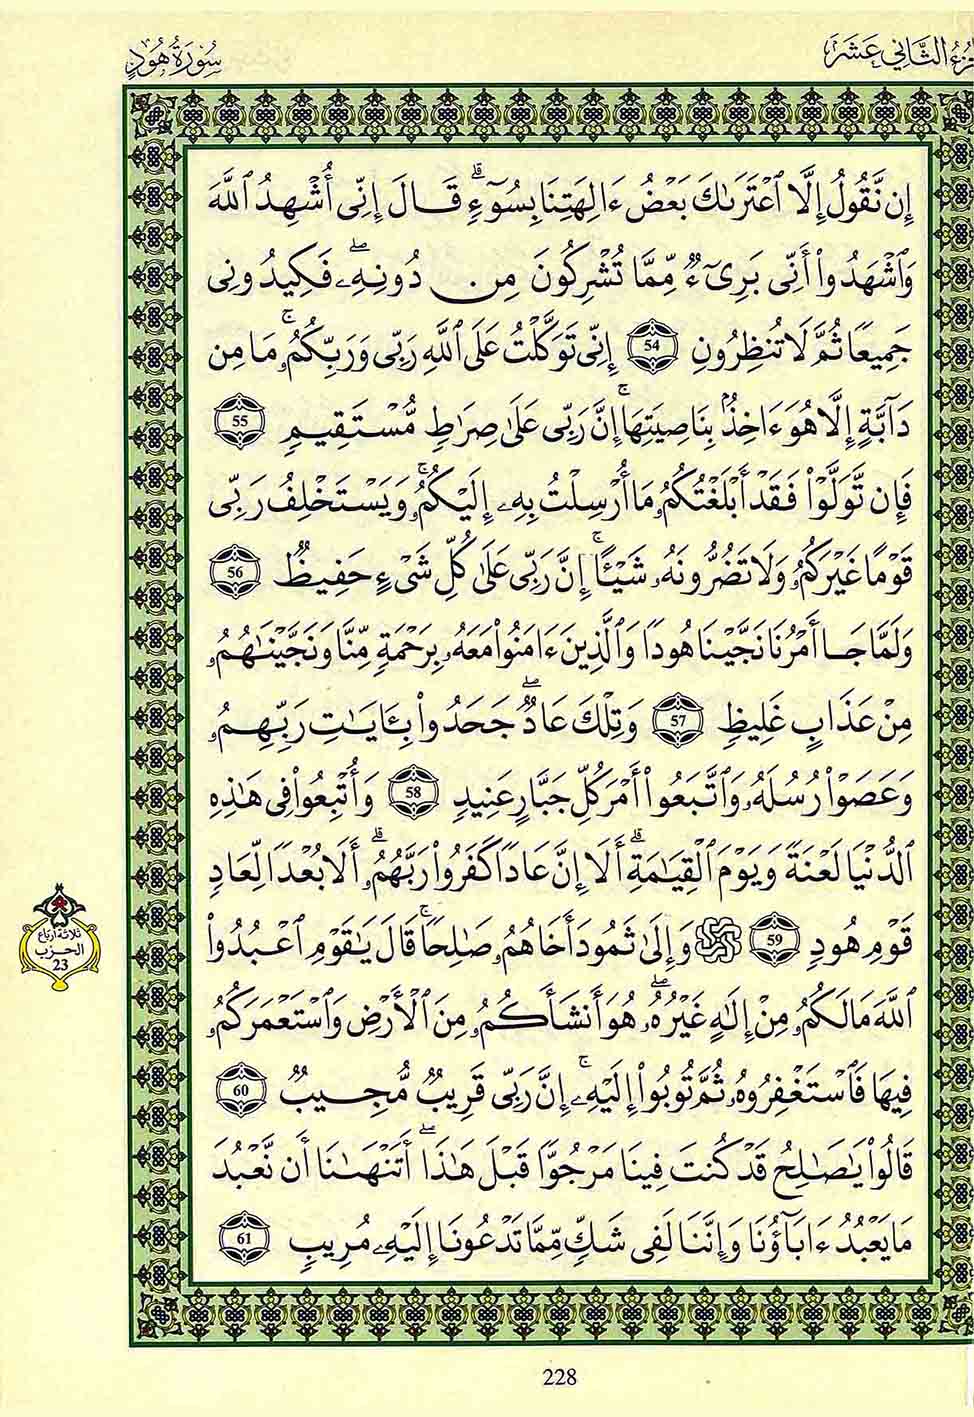 جُزءُ الثَّانِي عَشَرَ
سُورَةُ هُودٍ
إِن نَّقُولُ إِلَّا ٱعْتَرَىٰكَ بَعْضُ ءَالِهَتِنَا بِسُوٓءٍۗ قَالَ إِنِّى أُشْهِدُ ٱللَّهَ
وَٱشْهَدُوا۟ أَنِّى بَرِىٓءٌ مِّمَّا تُشْرِكُونَ مِن دُونِهِۦۖ فَكِيدُونِى
جَمِيعًا ثُمَّ لَا تُنظِرُونِ 54 إِنِّى تَوَكَّلْتُ عَلَى ٱللَّهِ رَبِّى وَرَبِّكُمُۥۚ مَا مِن
دَآبَّةٍ إِلَّا هُوَ ءَاخِذٌۢ بِنَاصِيَتِهَآۚ إِنَّ رَبِّى عَلَىٰ صِرَٰطٍ مُّسْتَقِيمٍ 55
فَإِن تَّوَلَّوْا۟ فَقَدْ أَبْلَغْتُكُمُۥ مَا أُرْسِلْتُ بِهِۦ إِلَيْكُمُۥۚ وَيَسْتَخْلِفُ رَبِّى
قَوْمًا غَيْرَكُمُۥ وَلَا تَضُرُّونَهُۥ شَيْـًٔاۚ إِنَّ رَبِّى عَلَىٰ كُلِّ شَىْءٍ حَفِيظٌ 56
وَلَمَّا جَا أَمْرُنَا نَجَّيْنَا هُودًا وَٱلَّذِينَ ءَامَنُوا۟ مَعَهُۥ بِرَحْمَةٍ مِّنَّا وَنَجَّيْنَٰهُمُۥ
مِنْ عَذَابٍ غَلِيظٍ 57 وَتِلْكَ عَادٌۖ جَحَدُوا۟ بِـَٔايَٰتِ رَبِّهِمُۥ
وَعَصَوْا۟ رُسُلَهُۥ وَٱتَّبَعُوا۟ أَمْرَ كُلِّ جَبَّارٍ عَنِيدٍ 58 وَأُتْبِعُوا۟ فِى هَٰذِهِ
ٱلدُّنْيَا لَعْنَةً وَيَوْمَ ٱلْقِيَٰمَةِۗ أَلَا إِنَّ عَادًا كَفَرُوا۟ رَبَّهُمُۥۗ أَلَا بُعْدًا لِّعَادٍ
قَوْمِ هُودٍ 59 وَإِلَىٰ ثَمُودَ أَخَاهُمُۥ صَٰلِحًاۚ قَالَ يَٰقَوْمِ ٱعْبُدُوا۟
ٱللَّهَ مَا لَكُمُۥ مِنْ إِلَٰهٍ غَيْرُهُۥۖ هُوَ أَنشَأَكُمُۥ مِنَ ٱلْأَرْضِ وَٱسْتَعْمَرَكُمُۥ
فِيهَا فَٱسْتَغْفِرُوهُۥ ثُمَّ تُوبُوا۟ إِلَيْهِۦۚ إِنَّ رَبِّى قَرِيبٌ مُّجِيبٌ 60
قَالُوا۟ يَٰصَٰلِحُ قَدْ كُنتَ فِينَا مَرْجُوًّا قَبْلَ هَٰذَاۖ أَتَنْهَىٰنَا أَن نَّعْبُدَ
مَا يَعْبُدُ ءَابَآؤُنَا وَإِنَّنَا لَفِى شَكٍّ مِّمَّا تَدْعُونَا إِلَيْهِۦ مُرِيبٍ 61
ثلاثة أرباع
الحزب
23
228